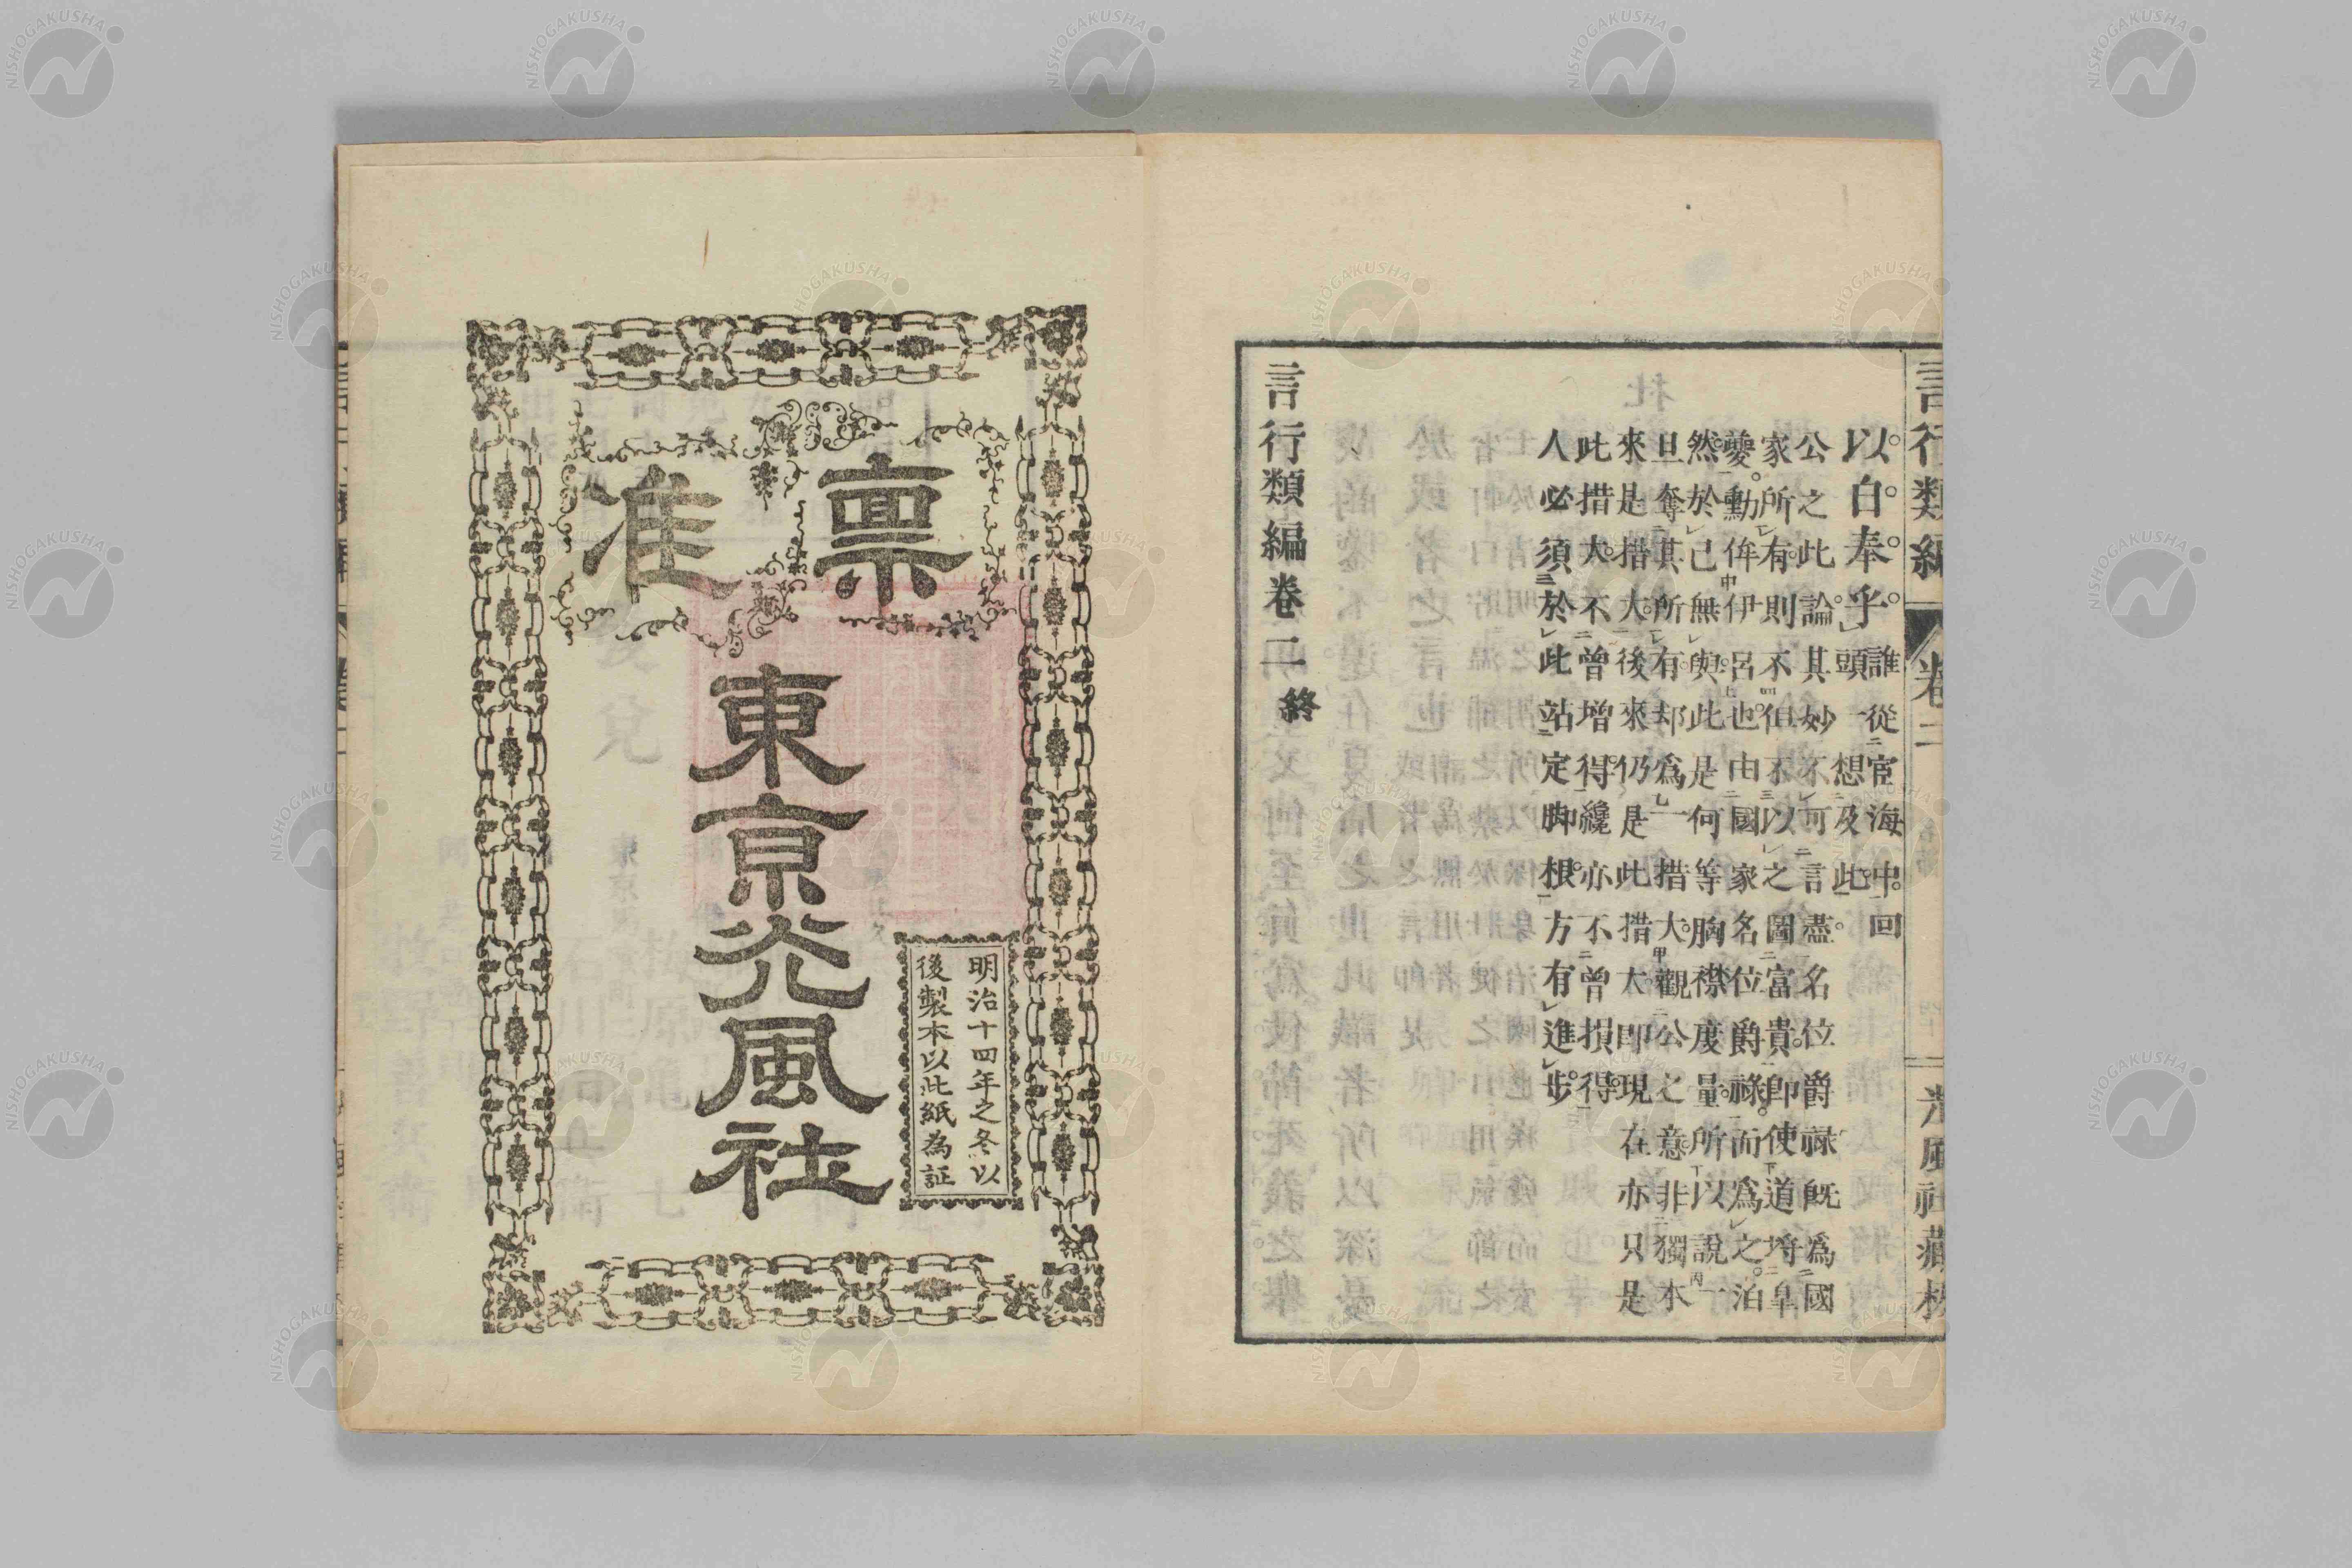 言行類編
卷二
光風社藏梓
以白奉乎誰從宦海中回
頭一想及此
公之此論其妙不可言盡名位爵祿旣爲國
家所有則不但不以之圖富貴卽使道埓皐
夔勳侔伊呂也由國家名位爵祿而爲之泊
然於己無與此是何等胸襟度量所以說一
旦奪其所有却爲一措大觀公之意非獨本
來是措大後來仍是此措大卽現在亦只是
此措大不曾增得纔亦不曾損得
人必須於此站定脚根方有進步
言行類編卷二終
稟准
明治十四年之冬以
後製本以此紙為証
東京光風社
NISHOGAKUSHA